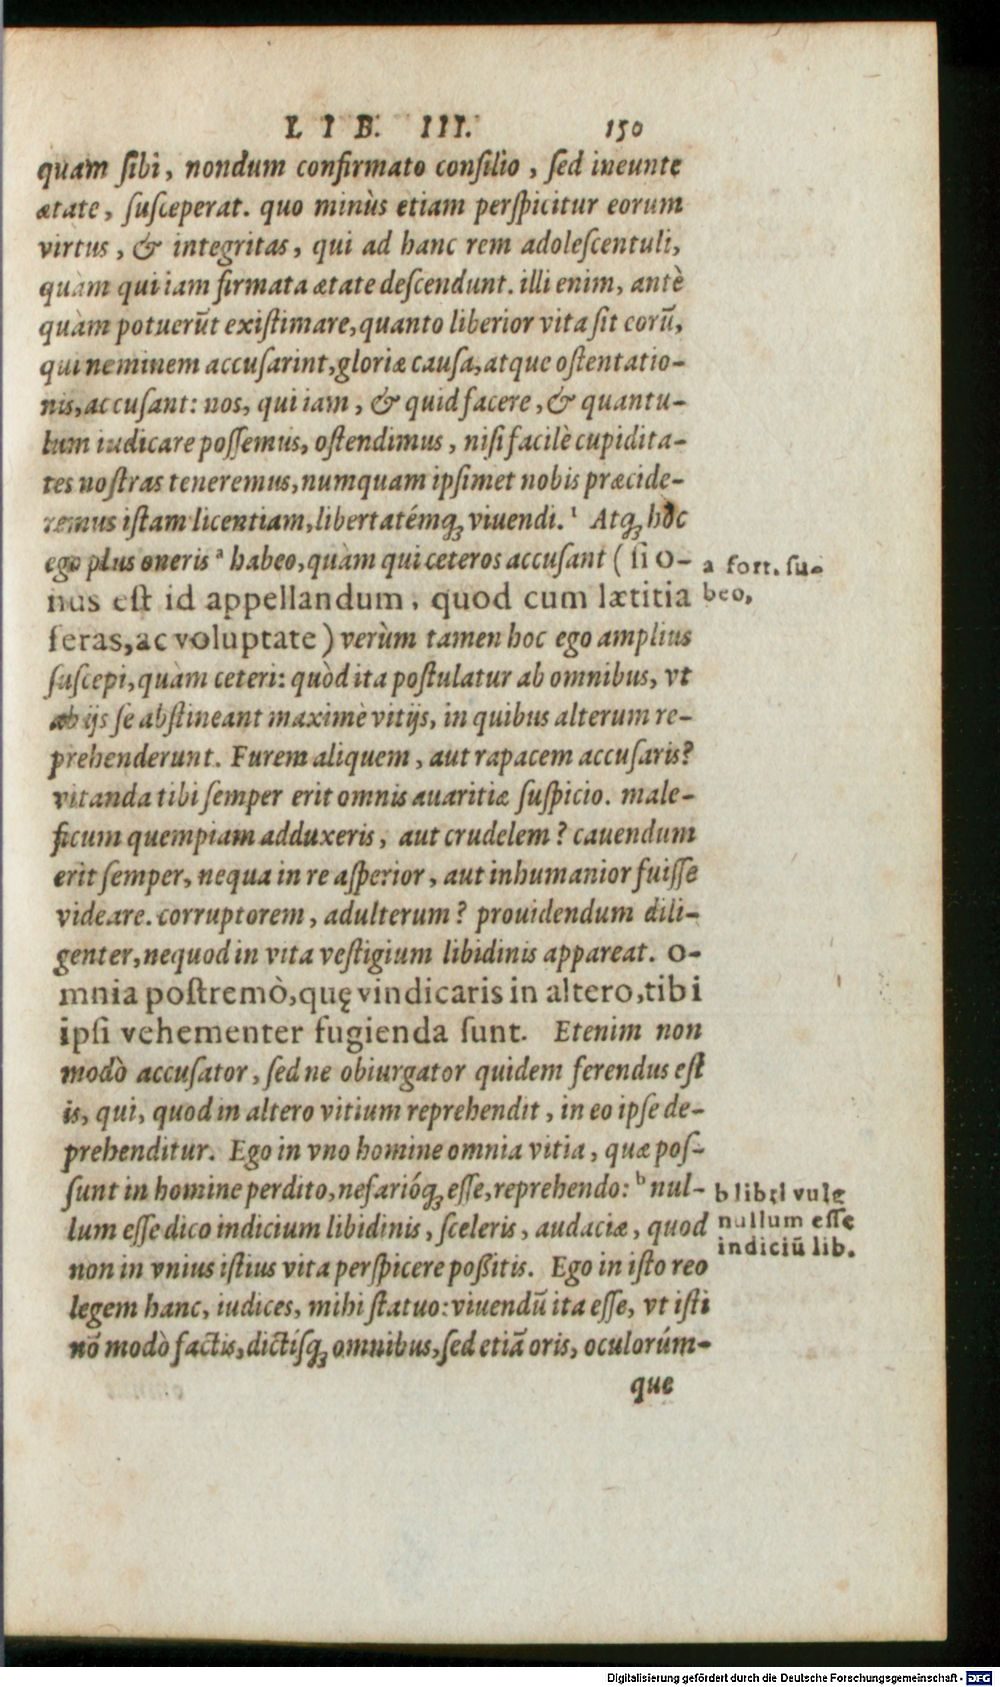 LIB. III. 150
quam ſibi, nondum confirmato conſilio, ſed ineunte
ætate, ſuſceperat. quo minùs etiam perſpicitur eorum
virtus, & integritas, qui ad hanc rem adoleſcentuli,
quàm qui iam firmata ætate deſcendunt. illi enim, antè
quàm potuerūt exiſtimare, quanto liberior vita ſit eorū,
qui neminem accuſarint, gloriæ cauſa, atque oſtentatio-
nis, accuſant: nos, qui iam, & quid facere, & quantu-
lum iudicare poſſemus, oſtendimus, niſi facilè cupidita-
tes noſtras teneremus, numquam ipſimet nobis præcide-
remus iſtam licentiam, libertatémq; viuendi.¹ Atq; hoc
ego plus oneris ᵃ habeo, quàm qui ceteros accuſant (ſi o-
a fort. ſu-
nus eſt id appellandum, quod cum lætitia
beo,
feras, ac voluptate) verùm tamen hoc ego amplius
ſuſcepi, quàm ceteri: quòd ita poſtulatur ab omnibus, vt
ab ijs ſe abſtineant maximè vitijs, in quibus alterum re-
prehenderunt. Furem aliquem, aut rapacem accuſaris?
vitanda tibi ſemper erit omnis auaritiæ ſuſpicio. male-
ficum quempiam adduxeris, aut crudelem? cauendum
erit ſemper, nequa in re aſperior, aut inhumanior fuiſſe
videare. corruptorem, adulterum? prouidendum dili-
genter, nequod in vita veſtigium libidinis appareat. o-
mnia poſtremò, quę vindicaris in altero, tibi
ipſi vehementer fugienda ſunt. Etenim non
modò accuſator, ſed ne obiurgator quidem ferendus eſt
is, qui, quod in altero vitium reprehendit, in eo ipſe de-
prehenditur. Ego in vno homine omnia vitia, quæ poſ-
ſunt in homine perdito, nefarióq; eſſe, reprehendo: ᵇ nul-
b libri vulg
lum eſſe dico indicium libidinis, ſceleris, audaciæ, quod
nullum eſſe
non in vnius iſtius vita perſpicere poßitis. Ego in iſto reo
indiciū lib.
legem hanc, iudices, mihi ſtatuo: viuendū ita eſſe, vt iſti
nō modò factis, dictíſq; omnibus, ſed etiā oris, oculorúm-
que
Digitalisierung gefördert durch die Deutsche Forschungsgemeinschaft - DFG